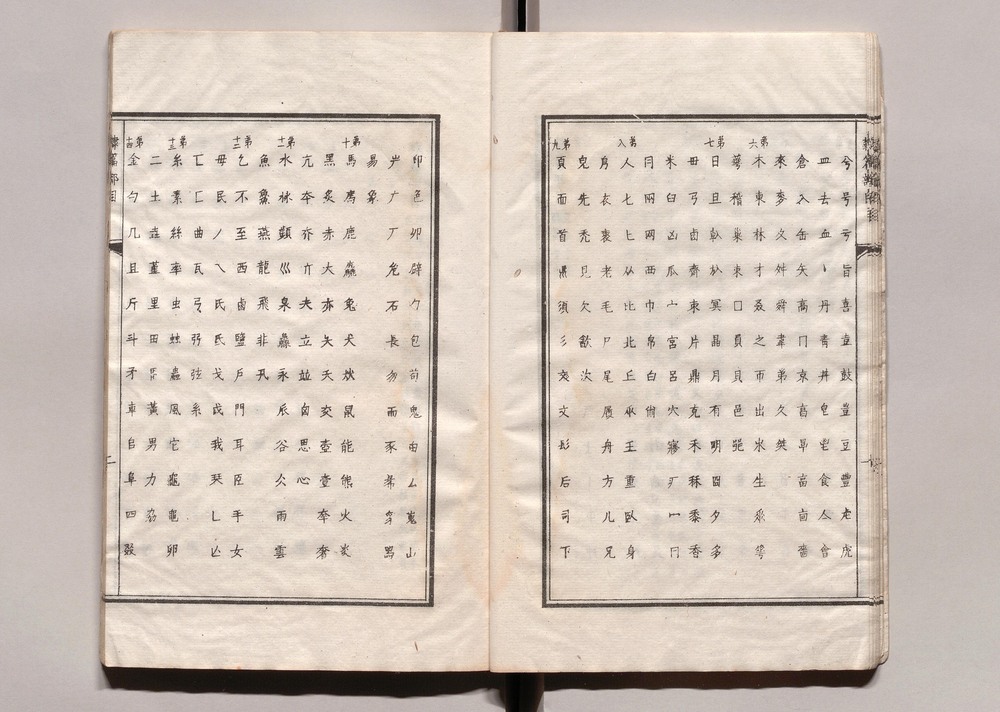 兮号亏旨喜壴鼓豈豆豐虍虎
皿去血丶丹青井皀鬯食亼會
倉入缶矢高冂京亯㫗畗㐭嗇
來麥夊舛舜韋弟久桀
第六 木東林才叒之帀出𣎵生𠂹𠌶
華稽巢束囗員貝邑𨛜
第七 日旦倝㫃冥晶月有明囧夕多
毌弓卤齊朿片鼎克禾秝黍香
米臼凶瓜宀宮呂穴㝱疒冖冃
㒳网襾巾帛白㡀
第八 人七匕从比北丘㐺王重臥身
㐆衣裘老毛尸尾履舟方儿兄
皃先禿見欠㱃次
第九 頁面首県須彡彣文髟后司卩
印色卯辟勹包茍鬼甶厶嵬山
屵广厂危石長勿而豕㣇豸
易象
第十 馬廌鹿麤兔犬㹜鼠能熊火炎
黑炙赤大亦夨夭交壺壹㚔奢
亢夲夰亣夫立竝囟思心
第十一 水沝瀕巛泉灥永𠂢谷仌雨雲
魚𩺰燕龍飛非卂
第十二 乞不至西鹵鹽戶門耳臣手女
毋民丿乁氏氐戈戉我琴乚亾
匸匚曲瓦弓弜弦系
第十三 糸素絲率虫䖵蟲風它龜黽卵
二土垚堇里田畕黃男力劦
第十四 金勺几且斤斗矛車𠂤阜四叕